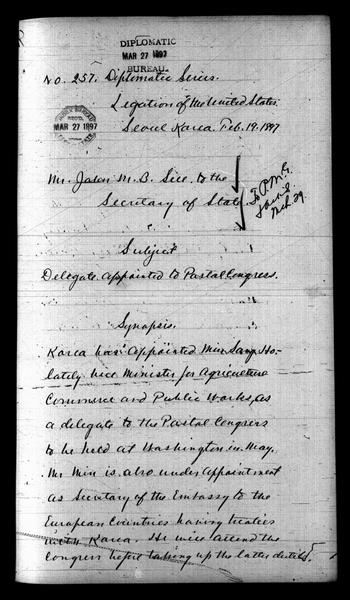 DIPLOMATIC
MAR 27 1897
BUREAU.
No. 257. Diplomatic Series.
Legation of the United States.
Seoul Korea. Feb. 19. 1897
MAR 27 1897
Mr. Jason M. B. Sill. to the
Secretary of State.
To P.M.G.
Mch. 29.
Subject
Delegate appointed to Postal Congress.
Synopsis.
Korea has appointed Min Sang Ho-
lately Vice Minister for Agriculture
Commerce and Public Works, as
a delegate to the Postal Congress
to be held at Washington in May.
Mr Min is also under appointment
as Secretary of the Embassy to the
European Countries having treaties
with Korea. He will attend the
Congress before taking up the latter duties.